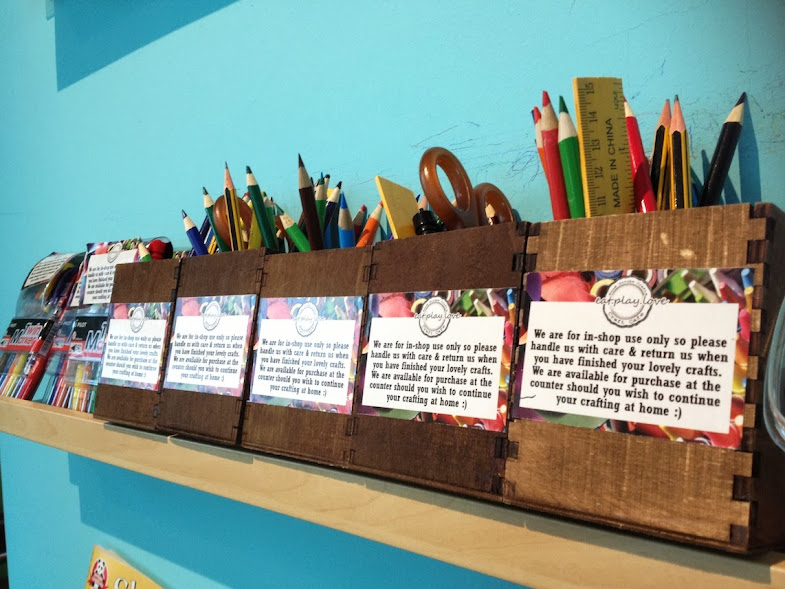 15
14
13
12
11
MADE IN CHINA
eat.play.love
We are for in-shop use only so please
handle us with care & return us when
you have finished your lovely crafts.
We are available for purchase at the
counter should you wish to continue
your crafting at home :)
eat.play.love
We are for in-shop use only so please
handle us with care & return us when
you have finished your lovely crafts.
We are available for purchase at the
counter should you wish to continue
your crafting at home :)
We are for in-shop use only so please
handle us with care & return us when
you have finished your lovely crafts.
We are available for purchase at the
counter should you wish to continue
your crafting at home :)
We are for in-shop use only so please
handle us with care & return us when
you have finished your lovely crafts.
We are available for purchase at the
counter should you wish to continue
your crafting at home :)
We are for in-shop use only so please
handle us with care & return us when
you have finished your lovely crafts.
We are available for purchase at the
counter should you wish to continue
your crafting at home :)
PILOT